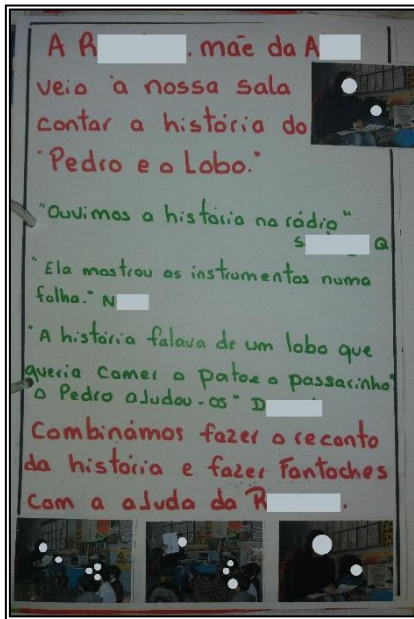 A R . mãe da A
veio à nossa sala
contar a história do
"Pedro e o Lobo."
"Ouvimos a história no rádio"
S Q
"Ela mostrou os instrumentos numa
folha." N
"A história falava de um lobo que
queria comer o pato e o passarinho
o Pedro ajudou-os" D
Combinámos fazer o reconto
da história e fazer Fantoches
com a ajuda da R .